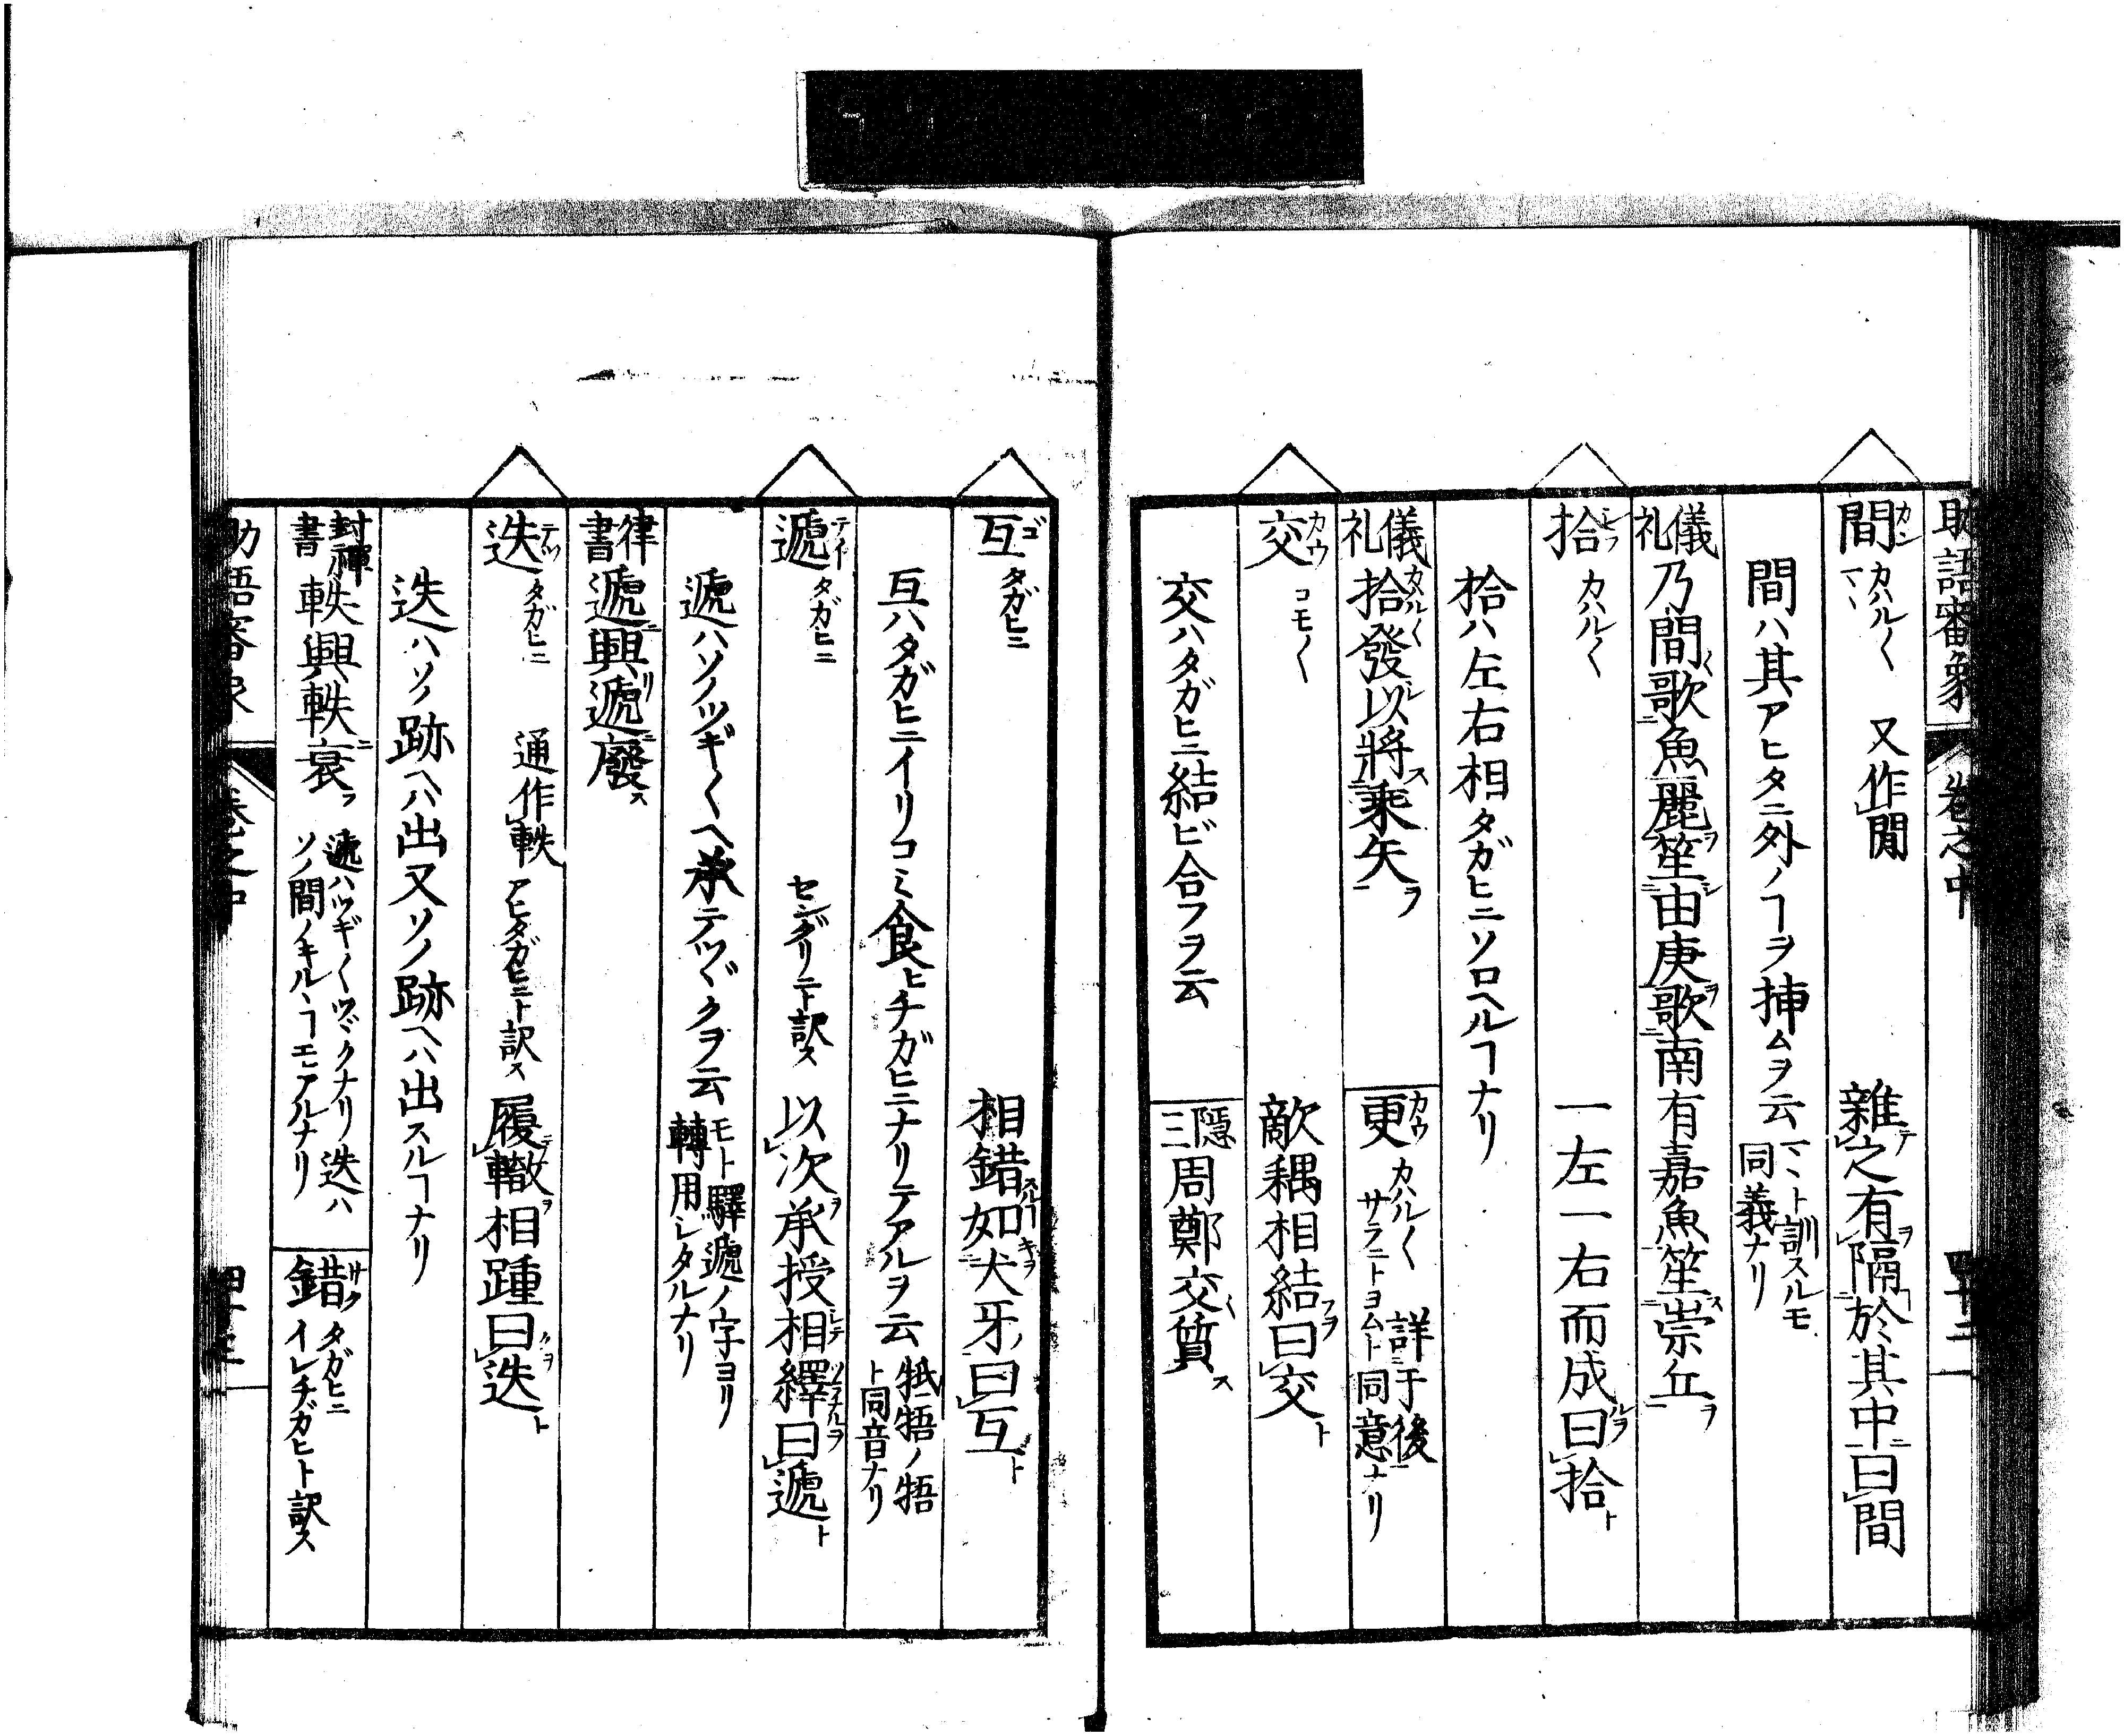 助語審象 巻之中 四十二
間 カン カハル〱 マヽ 又作閒 雜テ之有ヲ隔於其中ニ曰間
間ハ其アヒタニ外ノヿヲ挿ムヲ云 マヽト訓スルモ同義ナリ
儀礼 乃間〱歌魚麗ヲ笙由庚ヲ歌南有嘉魚笙ス崇丘ヲ
拾 レフ カハル〱 一左一右而成ルヲ曰拾ト
拾ハ左右相タガヒニソロヘルヿナリ
儀礼 拾カハル〱發以將ス乘矢ヲ 更 カウ カハル〱 詳于後 サラニトヨムト同意ナリ
交 カウ コモ〱 敵耦相結フヲ曰交ト
交ハタガヒニ結ビ合フヲ云 隱三 周鄭交〱質ス
互 ゴ タガヒニ 相錯スルヿ如キヲ犬牙ノ曰互ト
互ハタガヒニイリコミ食ヒチガヒニナリテアルヲ云 牴牾ノ牾ト同音ナリ
遞 テイ タガヒニ センヂリニト訳ス 以次ヲ承授相シテ繹ソヲナルヲ曰遞ト
遞ハソノツギ〱ヘ承テツヾクヲ云 モト驛遞ノ字ヨリ轉用シタルナリ
律書 遞ニ興リ遞ニ廢ス
迭 テツ タガヒニ 通作軼 アヒタガヒニト訳ス 履テ轍ヲ相踵クヲ曰迭ト
迭ハソノ跡ヘハ出又ソノ跡ヘハ出スルヿナリ
封禪書 軼興軼ニ衰フ 遞ハツギ〱ツヾクナリ迭ハソノ間ノキルヽヿモアルナリ 錯 サク タガヒニ イレチガヒト訳ス
助語審象 巻之中 四十三